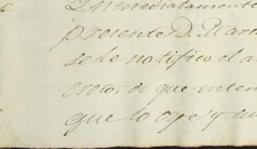 Inmediatamente
presente D. Mar
se le notificó el a
creto, de que
que lo oye y